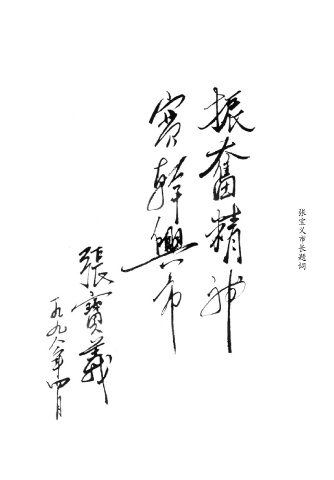 振奮精神
實幹興市
張寶義
一九九八年四月
张宝义市长题词